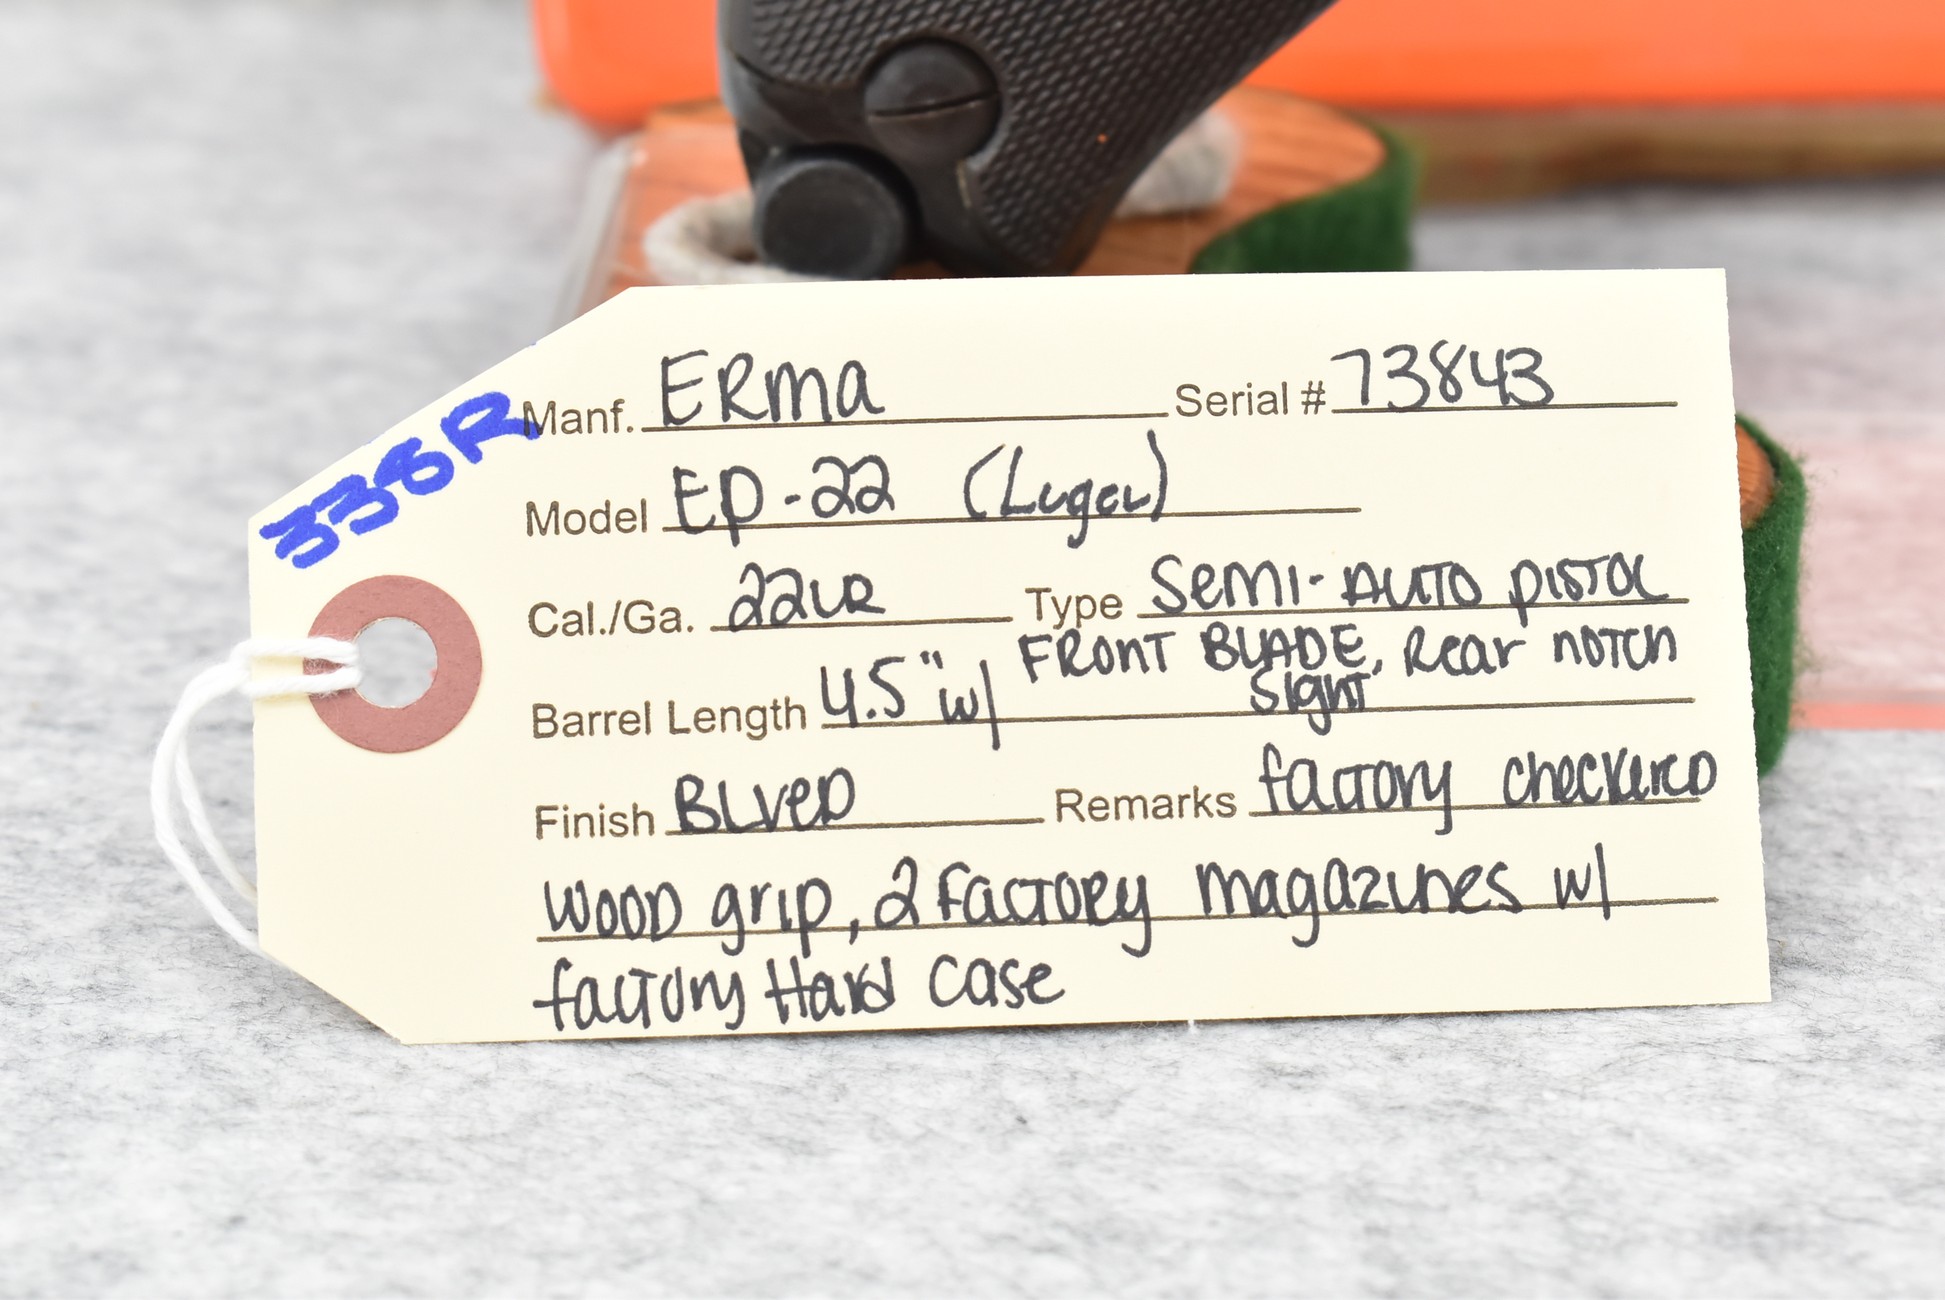 338R
Manf. ERma Serial # 73843
Model EP-22 (Luger)
Cal./Ga. 22LR Type Semi-Auto pistol
FRONT BLADE, Rear notch
Barrel Length 4.5" w/ sight
Finish BLueD Remarks factory checkered
wood grip, 2 factory magazines w/
factory Hard Case